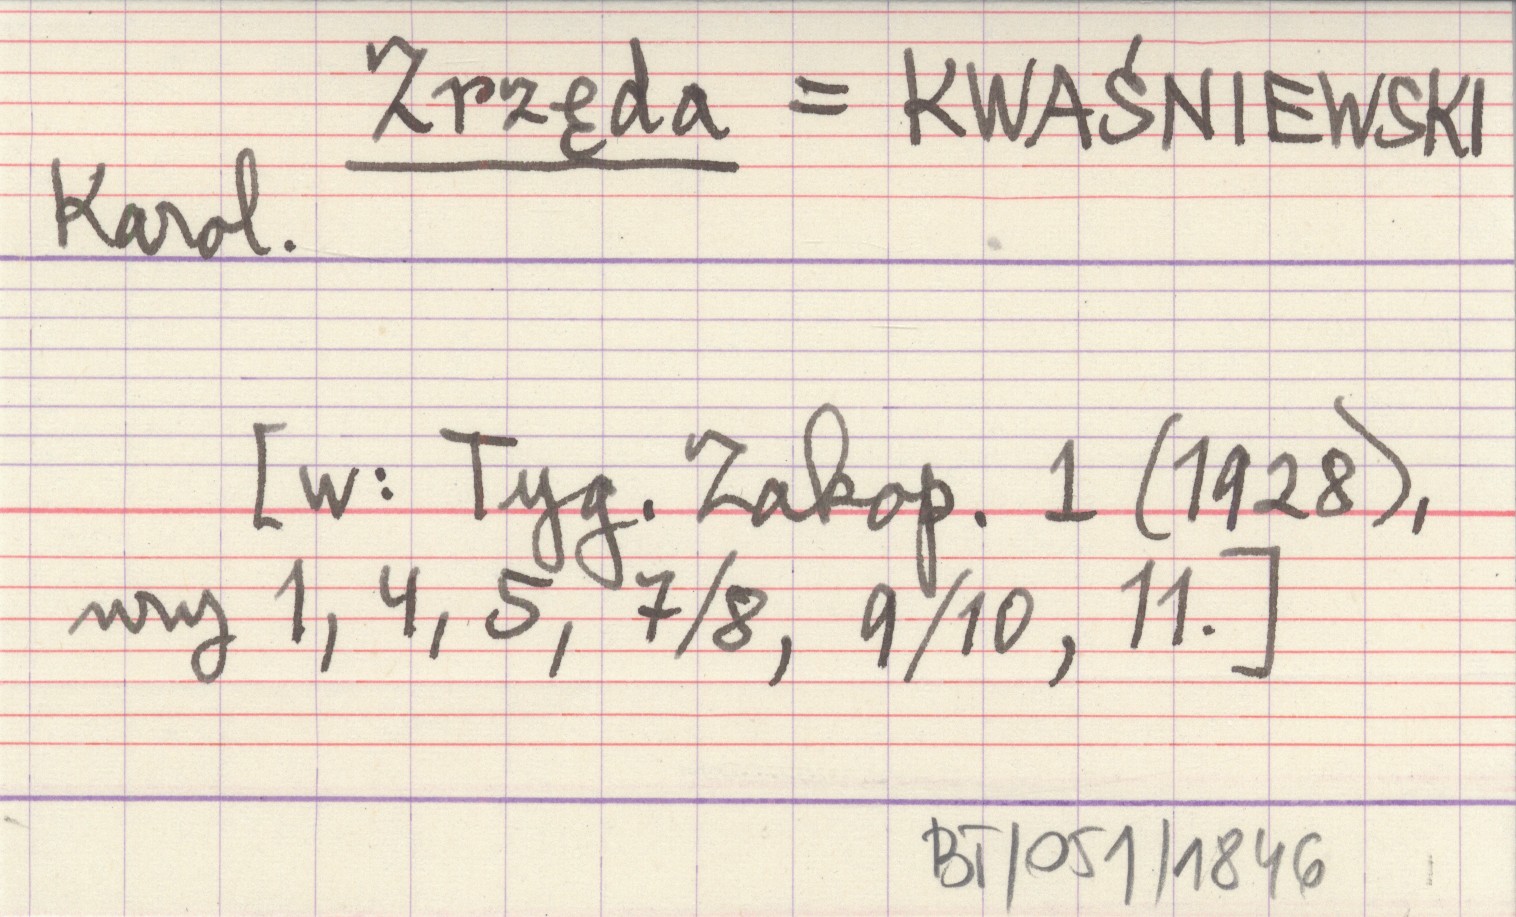 Zrzęda = KWAŚNIEWSKI
Karol.
[w: Tyg. Zakop. 1 (1928),
nry 1, 4, 5, 7/8, 9/10, 11.]
BT/051/1846